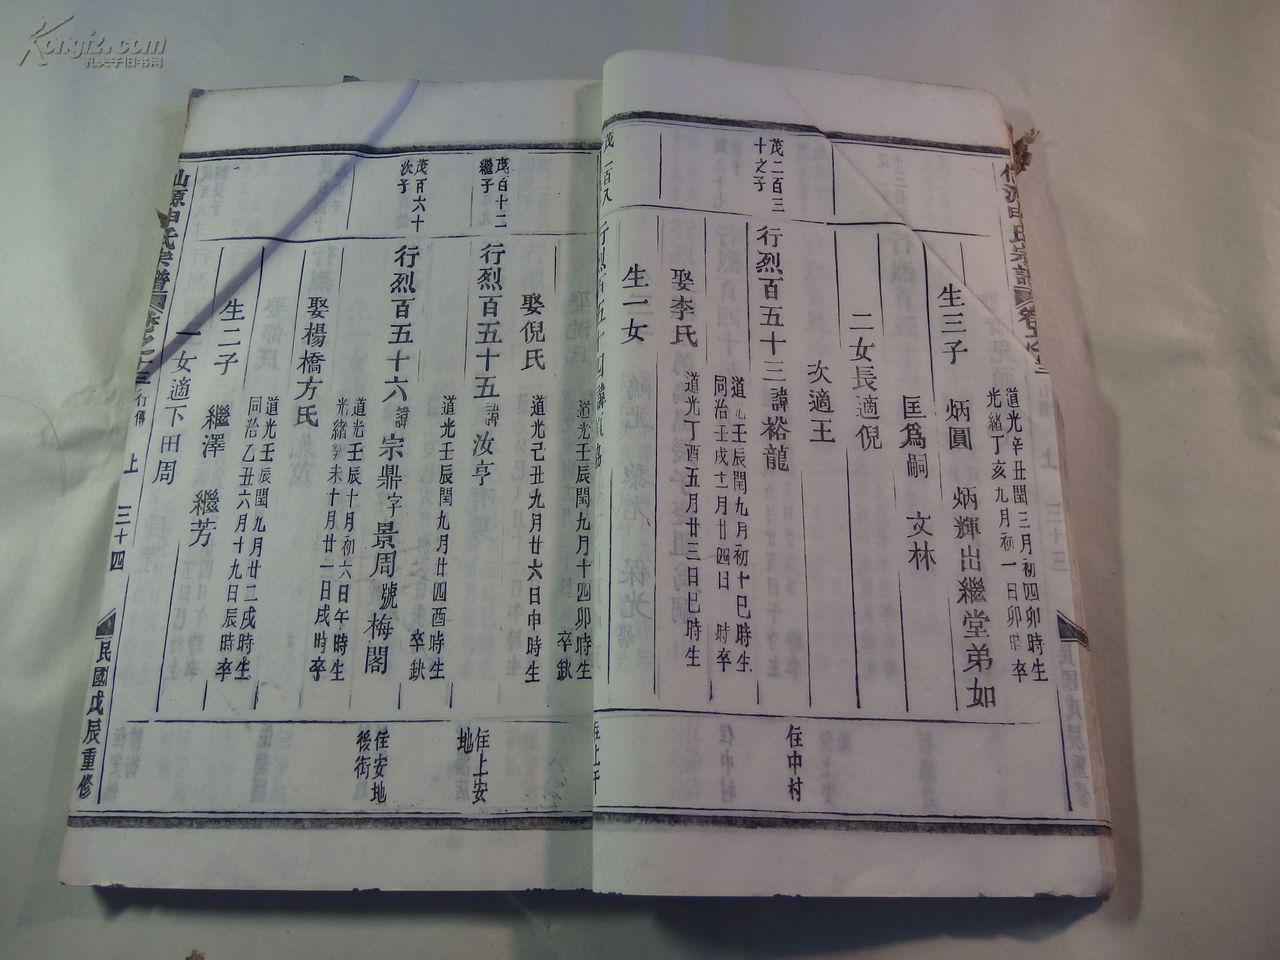 Kongfz.com
孔夫子旧书网
道光辛丑閏三月初四卯時生
光緒丁亥九月初一日卯時卒
生三子
炳圓
炳輝出繼堂弟如
匡爲嗣
文林
二女長適倪
次適王
茂二百三
十之子
行烈百五十三諱裕龍
道光壬辰閏九月初十巳時生
同治壬戌十二月廿四日 時卒
住中村
娶李氏
道光丁酉五月廿三日巳時生
生一女
道光壬辰閏九月十四卯時生
卒缺
娶倪氏
道光己丑九月廿六日申時生
茂百十二
繼子
行烈百五十五諱汝亨
道光壬辰閏九月廿四酉時生
卒缺
住上安
地
茂百六十
次子
行烈百五十六諱宗鼎字景周號梅閣
道光壬辰十月初六日午時生
光緒癸未十月廿一日戌時卒
住安地
後街
娶楊橋方氏
道光壬辰閏九月廿二戌時生
同治乙丑六月十九日辰時卒
生二子
繼澤
繼芳
一女適下田周
仙源申氏宗譜
行傳
上
三十四
民國戊辰重修